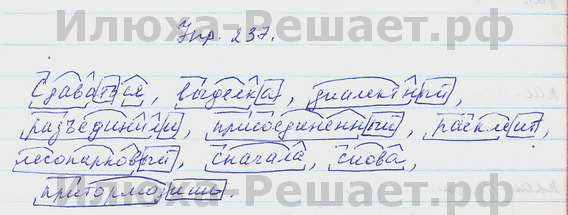 Илюха-Решает.рф
Упр. 237.
Сдаваться, выделка, диалектный,
разъединили, присоединенный, расклеит,
лесопарковый, сначала, снова,
притормозишь.
Илюха-Решает.рф